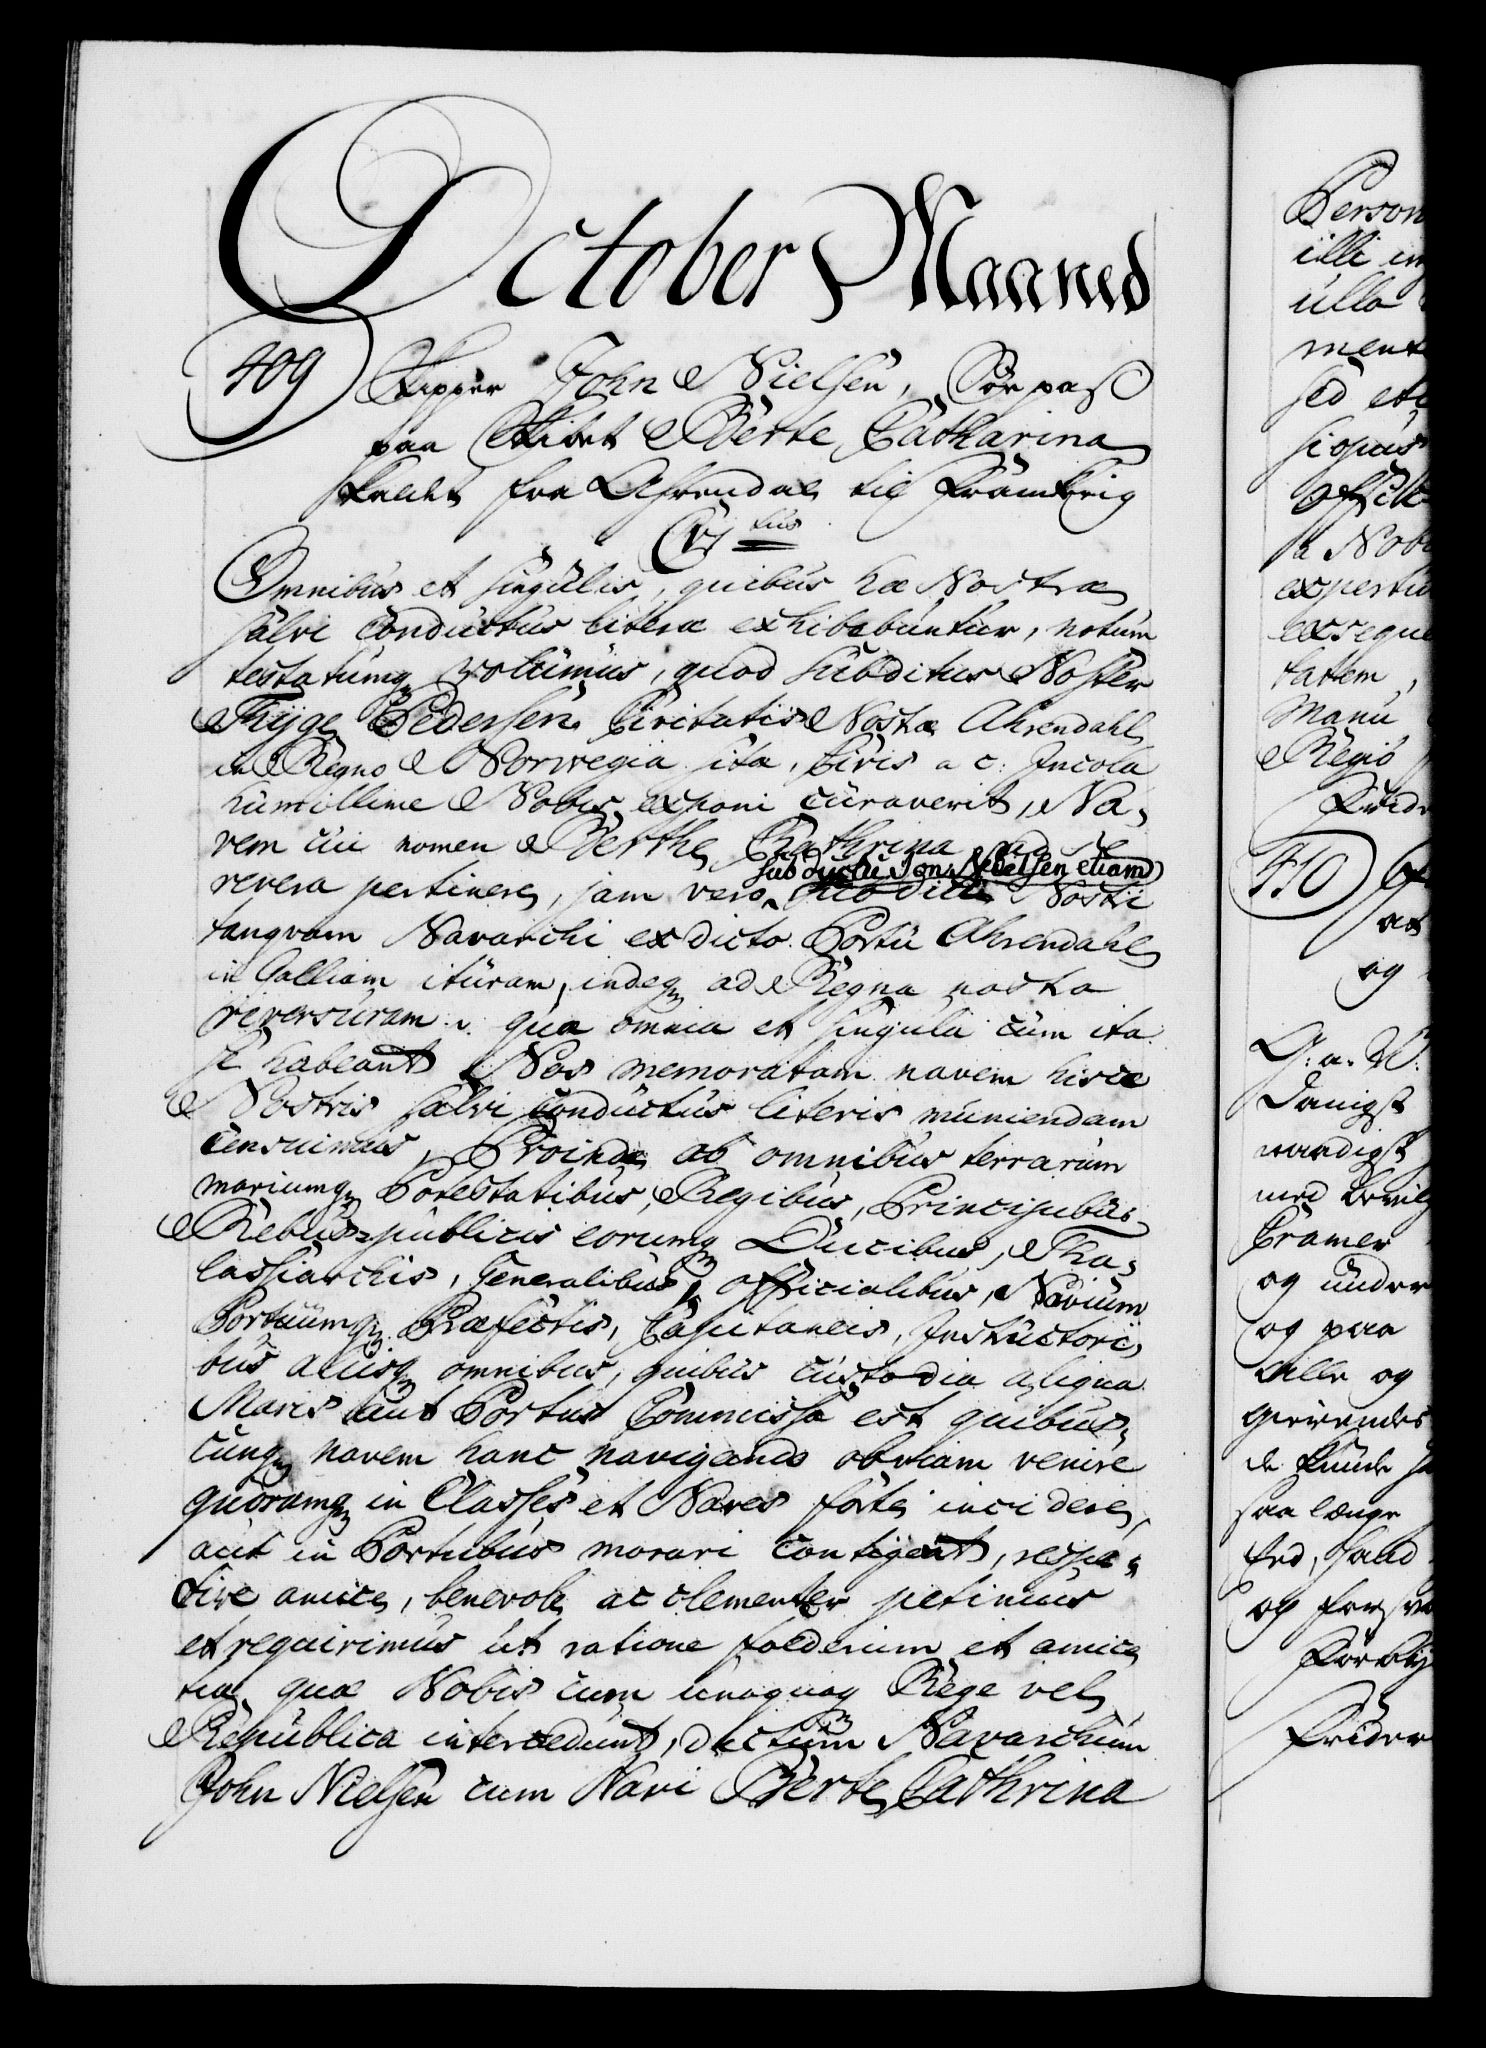 October Maaned
409
Skipper John Nielsen, Søe pass
paa Skibet Berte Catharina
fra Ahrendal til Franckrig
Omnibus et singulis, quibus hæ Nostræ
salvi Conductus literæ exhibebuntur, notum
testatumq volumus, quod subditus Noster
Thyge Pedersen Civitatis Nostræ Ahrendahl
in Regno Norwegiæ sita, Civis ac Incola
humillime Nobis exponi curaverit, Na-
vem cui nomen Berthe Cathrina ad se
sub ductu Jon Nielsen etiam
revera pertinere, jam vero Nostri
tanqvam Navarchi ex dicto Portu Ahrendahl
in Galliam ituram, indeq ad Regna nostra
reversuram. qua omnia et singula cum ita
se habeant Nos memoratam navem hisce
Nostris salvi conductus literis muniendam
censuimus, Proinde ab omnibus terrarum
mariumq Potestatibus, Regibus, Principibus
Rebus-publicis eorumq Ducibus, Tha-
lassiarchis, Generalibus, officialibus, Navium
Portuumq Præfectis, Capitaneis, Instructori-
bus aliisq omnibus, quibus custodia aliqua
Maris aut Portus Commissa est quibus-
cunq navem hanc navigando obviam venire
quorumq in Classes et Naves forte incidere,
aut in Portubus morari contigerit, respec-
tive amice, benevole ac clementer petimus
et requirimus ut ratione foederum et amici-
tiæ quæ Nobis cum unaquaq Rege vel
Republica intercedunt, dictum Navarchum
John Nielsen cum Navi Berte Cathrina
Person
illi
ulla
ment
sed
a Nob
exseque
tatem,
Manu
Regio
Frider
410
og
G: a: V:
Cramer
og under
og paa
alle og
saa længe
og
Frider